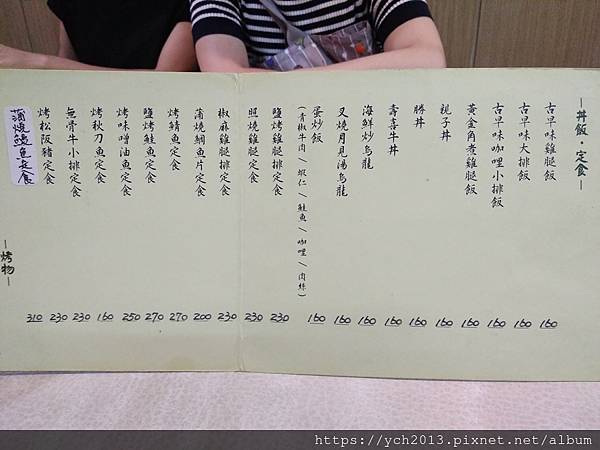 —丼飯・定食—
古早味雞腿飯 160
古早味大排飯 160
古早味咖哩小排飯 160
黃金角煮雞腿飯 160
親子丼 160
勝丼 160
壽喜牛丼 160
海鮮炒烏龍 160
叉燒月見湯烏龍 160
蛋炒飯 160
(青椒牛肉/蝦仁/鮭魚/咖哩/肉絲)
鹽烤雞腿排定食 230
照燒雞腿排定食 230
椒麻雞腿排定食 230
蒲燒鯛魚片定食 200
烤鯖魚定食 270
鹽烤鮭魚定食 270
烤味噌油魚定食 250
烤秋刀魚定食 160
無骨牛小排定食 230
烤松阪豬定食 230
蒲燒鰻魚定食 310
—烤物—
https://ych2013.pixnet.net/album